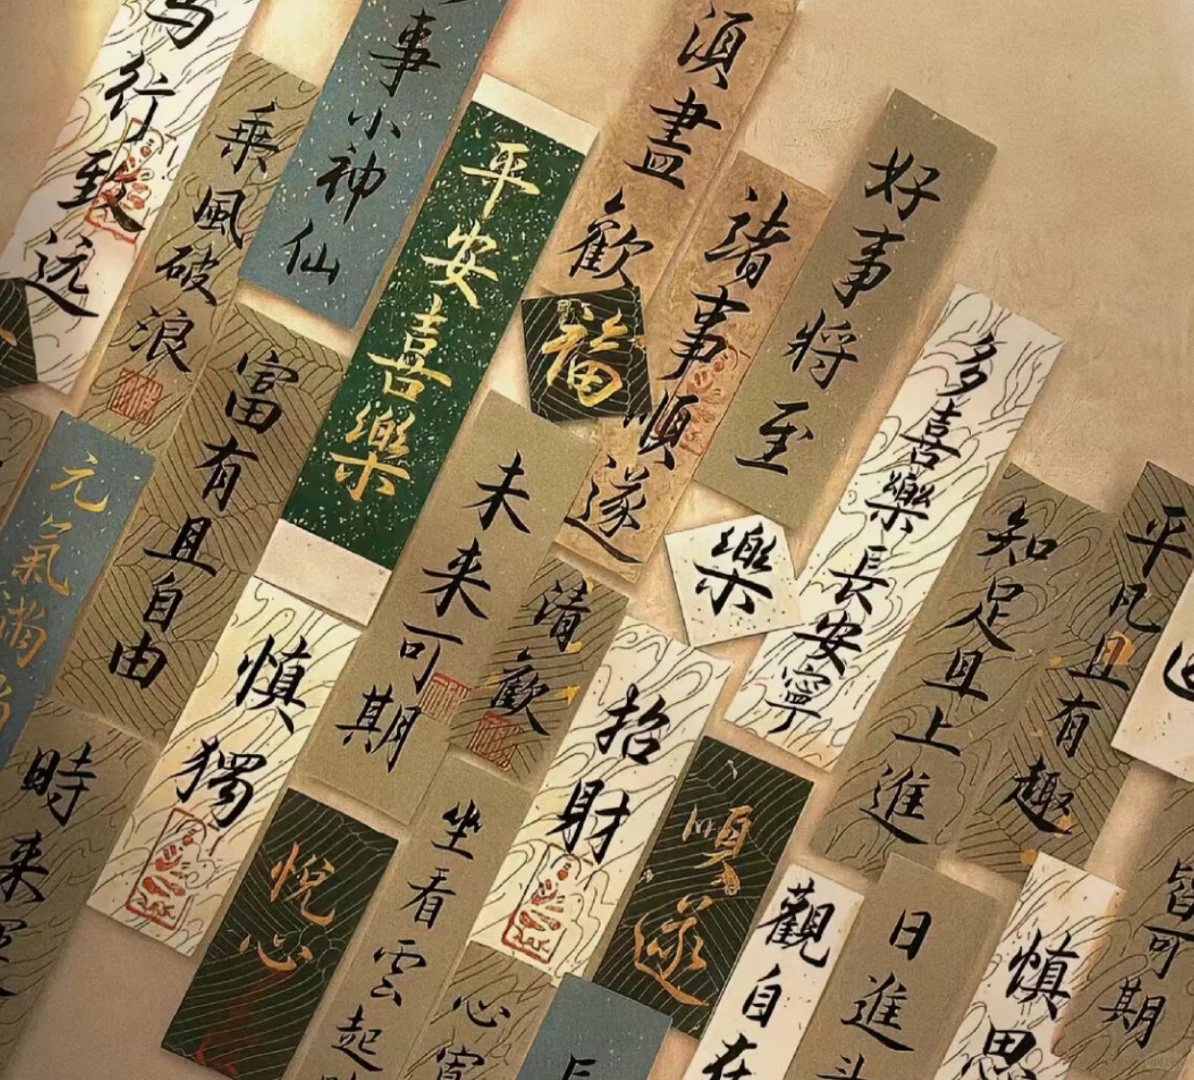 行致远
乘風破浪
事小神仙
平安喜樂
須盡歡
福
諸事順遂
好事将至
多喜樂長安寧
知足且上進
平凡且有趣
元氣满
富有且自由
未来可期
清歡
樂
慎獨
招財
順遂
時来
悅心
坐看雲起
心寬
觀自在
日進斗
慎思
皆可期